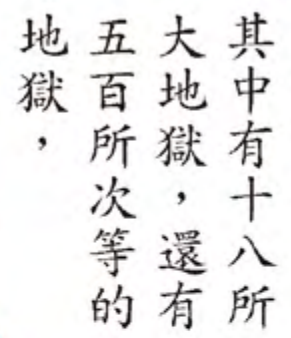 其中有十八所
大地獄，還有
五百所次等的
地獄，